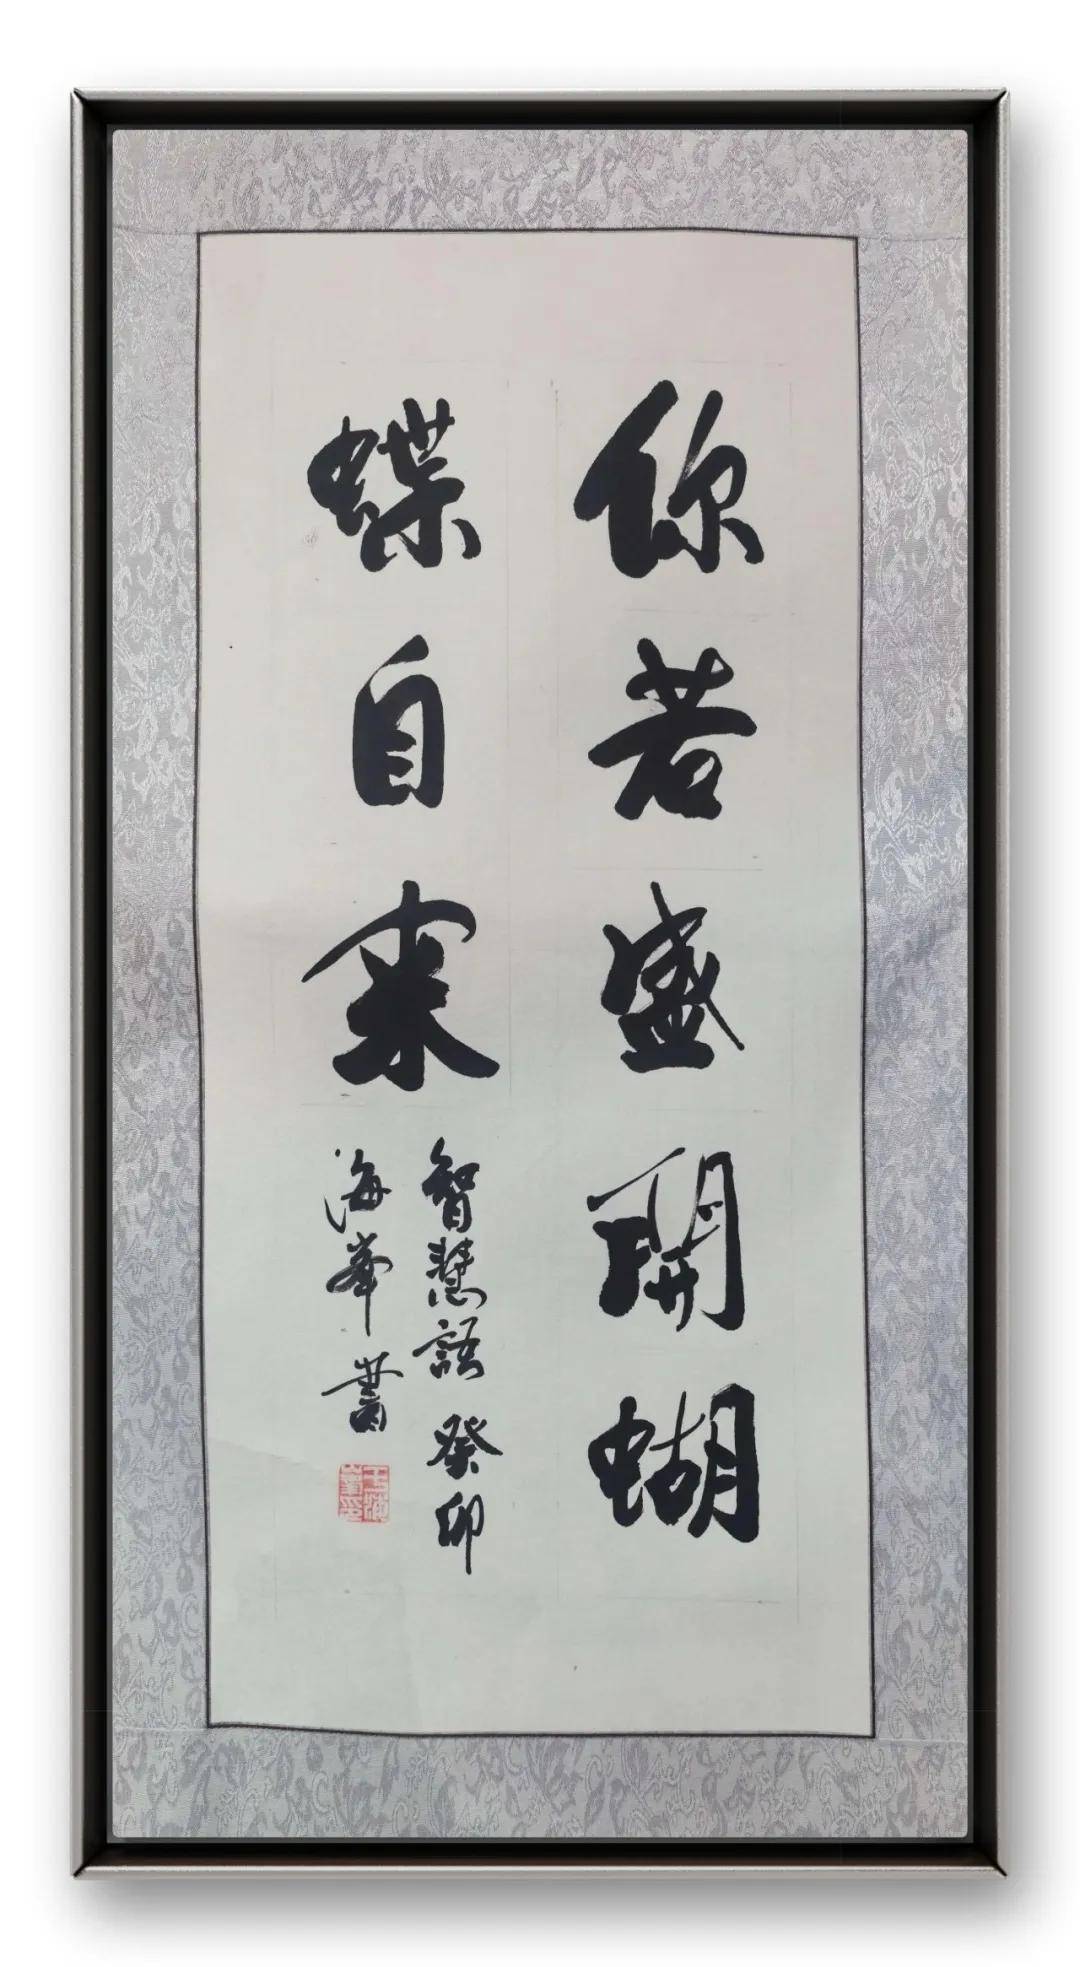 你若盛開蝴
蝶自来
智慧語 癸卯
海峯書